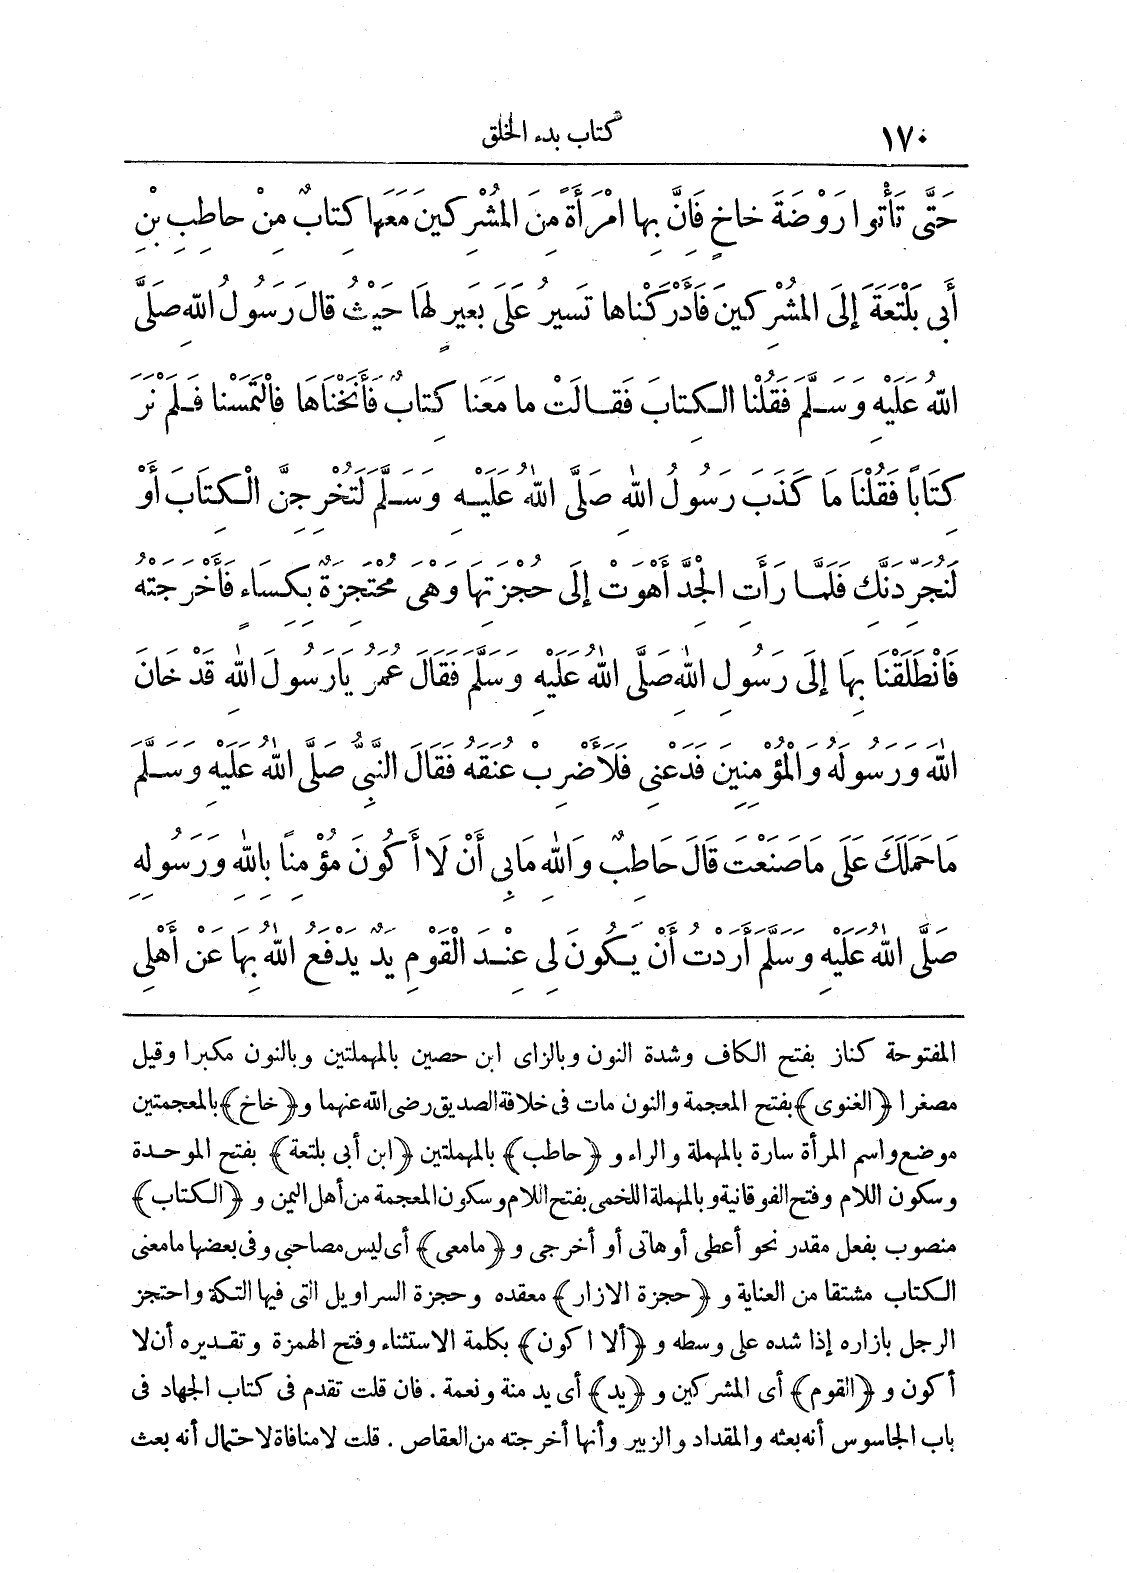 ١٧٠ كتاب بدء الخلق
حَتَّى تَأْتُوا رَوْضَةَ خاخٍ فَانَّ بِها امْرَأَةً مِنَ المُشْرِكينَ مَعَها كِتابٌ مِنْ حاطِبِ بْنِ
أَبى بَلْتَعَةَ إِلَى المُشْرِكينَ فَأَدْرَكْناها تَسيرُ عَلَى بَعيرٍ لَها حَيْثُ قالَ رَسُولُ اللهِ صَلَّى
اللهُ عَلَيْهِ وَسَلَّمَ فَقُلْنا الكِتابَ فَقالَتْ ما مَعَنا كِتابٌ فَأَنَخْناهَا فالْتَمَسْنا فَلَمْ نَرَ
كِتَاباً فَقُلْنَا مَا كَذَبَ رَسُولُ اللهِ صَلَّى اللهُ عَلَيْهِ وَسَلَّمَ لَتُخْرِجِنَّ الْكِتَابَ أَوْ
لَنُجَرِّدَنَّكِ فَلَمَّا رَأَتِ الْجِدَّ أَهْوَتْ إِلَى حُجْزَتِهَا وَهْىَ مُحْتَجِزَةٌ بِكِسَاءٍ فَأَخْرَجَتْهُ
فَانْطَلَقْنَا بِهَا إِلَى رَسُولِ اللهِ صَلَّى اللهُ عَلَيْهِ وَسَلَّمَ فَقَالَ عُمَرُ يَارَسُولَ اللهِ قَدْ خَانَ
اللهَ وَرَسُولَهُ وَالْمُؤْمِنِينَ فَدَعْنِى فَلَأَضْرِبْ عُنُقَهُ فَقَالَ النَّبِىُّ صَلَّى اللهُ عَلَيْهِ وَسَلَّمَ
مَا حَمَلَكَ عَلَى مَا صَنَعْتَ قَالَ حَاطِبٌ وَاللهِ مَا بِى أَنْ لَا أَكُونَ مُؤْمِناً بِاللهِ وَرَسُولِهِ
صَلَّى اللهُ عَلَيْهِ وَسَلَّمَ أَرَدْتُ أَنْ يَكُونَ لِى عِنْدَ الْقَوْمِ يَدٌ يَدْفَعُ اللهُ بِهَا عَنْ أَهْلِى
المفتوحة كناز بفتح الكاف وشدة النون وبالزاى ابن حصين بالمهملتين وبالنون مكبرا وقيل
مصغرا ﴿الغنوى﴾ بفتح المعجمة والنون مات فى خلافة الصديق رضى الله عنهما و﴿خاخ﴾ بالمعجمتين
موضع واسم المرأة سارة بالمهملة والراء و ﴿حاطب﴾ بالمهملتين ﴿ابن أبى بلتعة﴾ بفتح الموحدة
وسكون اللام وفتح الفوقانية وبالمهملة اللخمى بفتح اللام وسكون المعجمة من أهل اليمن و ﴿الكتاب﴾
منصوب بفعل مقدر نحو أعطى أوهاتى أو أخرجى و ﴿مامعى﴾ أى ليس مصاحبى وفى بعضها مامعنى
الكتاب مشتقا من العناية و ﴿حجزة الازار﴾ معقده وحجزة السراويل التى فيها التكة واحتجز
الرجل بازاره إذا شده على وسطه و ﴿ألا اكون﴾ بكلمة الاستثناء وفتح الهمزة وتقديره أن لا
أكون و ﴿القوم﴾ أى المشركين و ﴿يد﴾ أى يد منة ونعمة . فان قلت تقدم فى كتاب الجهاد فى
باب الجاسوس أنه بعثه والمقداد والزبير وأنها أخرجته من العقاص . قلت لا منافاة لاحتمال أنه بعث